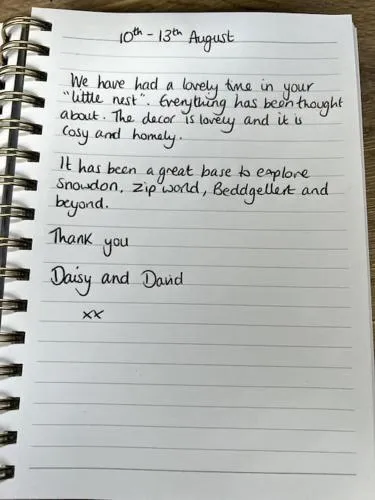 10th - 13th August
We have had a lovely time in your
"little nest". Everything has been thought
about. The decor is lovely and it is
cosy and homely.
It has been a great base to explore
Snowdon, Zip world, Beddgellert and
beyond.
Thank you
Daisy and David
xx